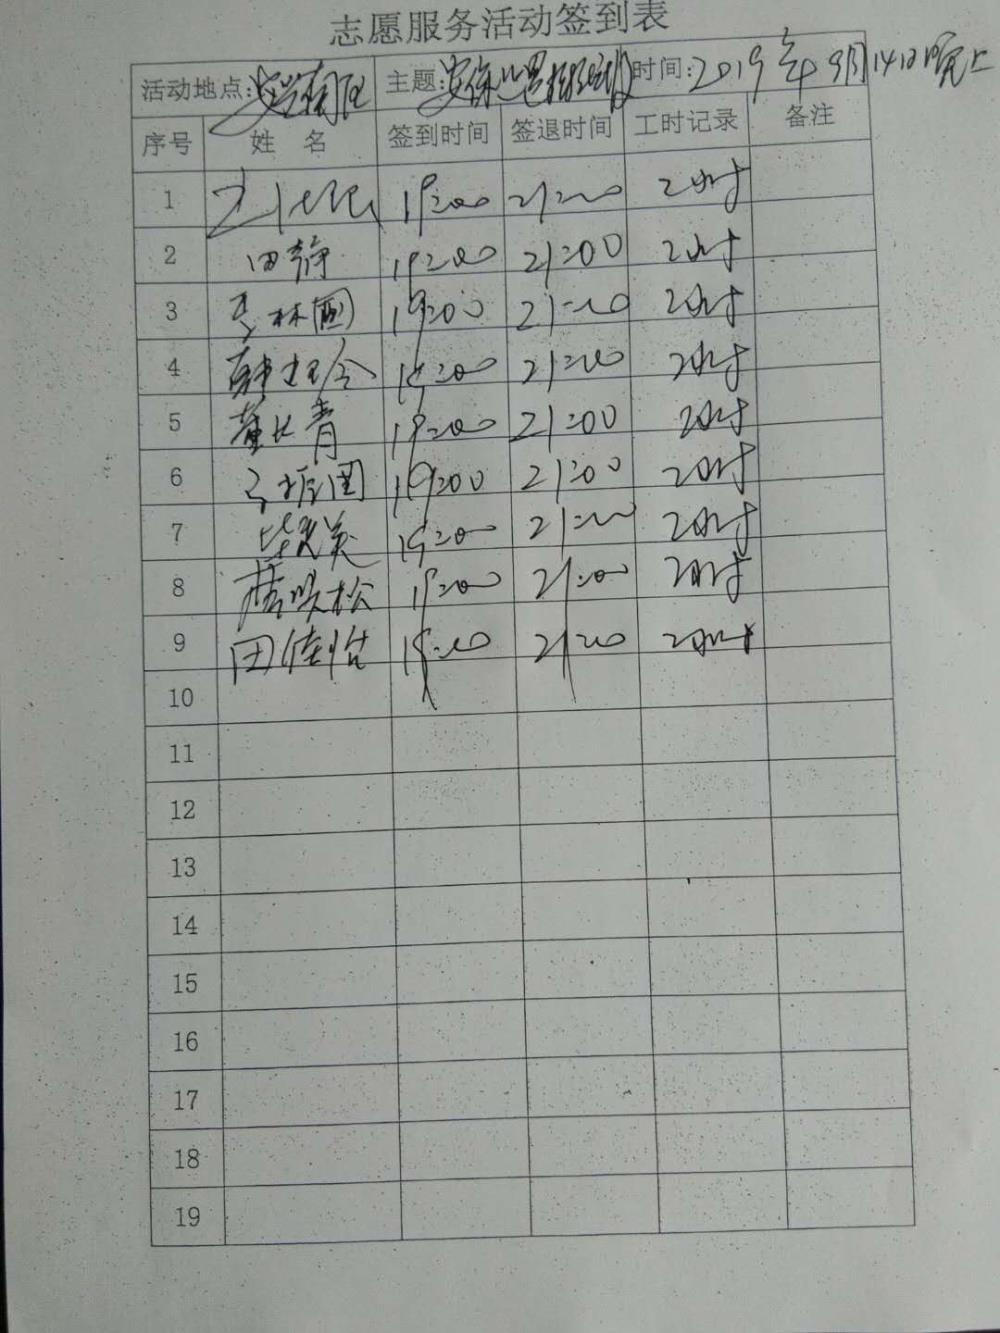 志愿服务活动签到表
活动地点: 主题: 时间:2019年9月14日晚上
序号 姓 名 签到时间 签退时间 工时记录 备注
1 19:00 21:00 2小时
2 田静 19:00 21:00 2小时
3 19:00 21:00 2小时
4 19:00 21:00 2小时
5 19:00 21:00 2小时
6 19:00 21:00 2小时
7 19:00 21:00 2小时
8 19:00 21:00 2小时
9 田佳怡 19:00 21:00 2小时
10
11
12
13
14
15
16
17
18
19